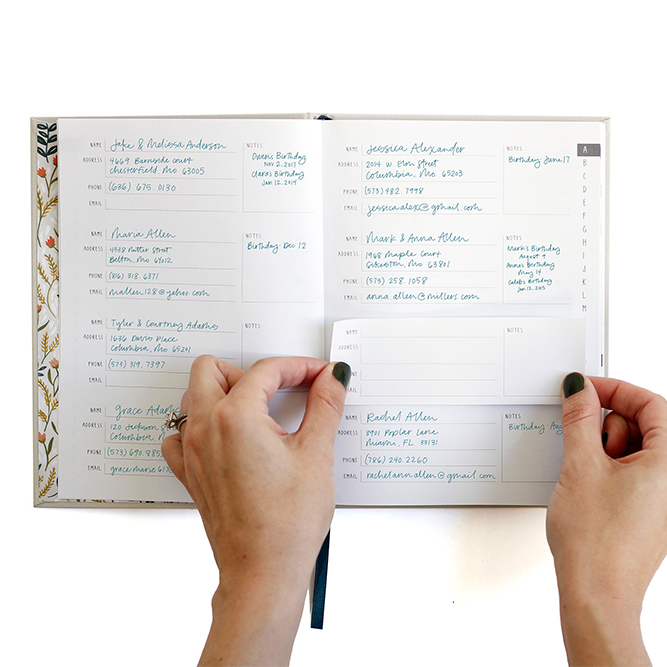 NAME Jake & Melissa Anderson
ADDRESS 4669 Burnside Court
Chesterfield Mo 63005
PHONE (636) 675.0130
EMAIL
NOTES
Owen's Birthday
Nov 2, 2017
Clara's Birthday
Jan 12, 2019
NAME Maria Allen
ADDRESS 4538 Mutter Street
Belton, Mo 64012
PHONE (816) 318.6371
EMAIL mallen128@yahoo.com
NOTES
Birthday Dec 12
NAME Tyler & Courtney Adams
ADDRESS 1636 Davis Place
Columbia, Mo 65201
PHONE (573) 319.7397
EMAIL
NOTES
NAME Grace
ADDRESS 120 Jackson
Columbia
PHONE (573) 690.885
EMAIL grace.marie
NAME Jessica Alexander
ADDRESS 2094 W. Elm Street
Columbia, Mo. 65203
PHONE (573) 482.7998
EMAIL jessicaalex@gmail.com
NOTES
Birthday June 17
NAME Mark & Anna Allen
ADDRESS 1968 Maple Court
Sikeston, Mo 63801
PHONE (573) 258.1058
EMAIL anna.allen@millers.com
NOTES
Mark's Birthday
August 9
Anna's Birthday
May 14
Caleb's Birthday
Jan 12, 2015
NAME
ADDRESS
EMAIL
NOTES
NAME Rachel Allen
ADDRESS 8901 Poplar Street
Miami, FL 33131
PHONE (786) 240.2260
EMAIL rachelann.allen@gmail.com
NOTES
Birthday Aug
A
B
C
D
E
F
G
H
I
J
K
L
M